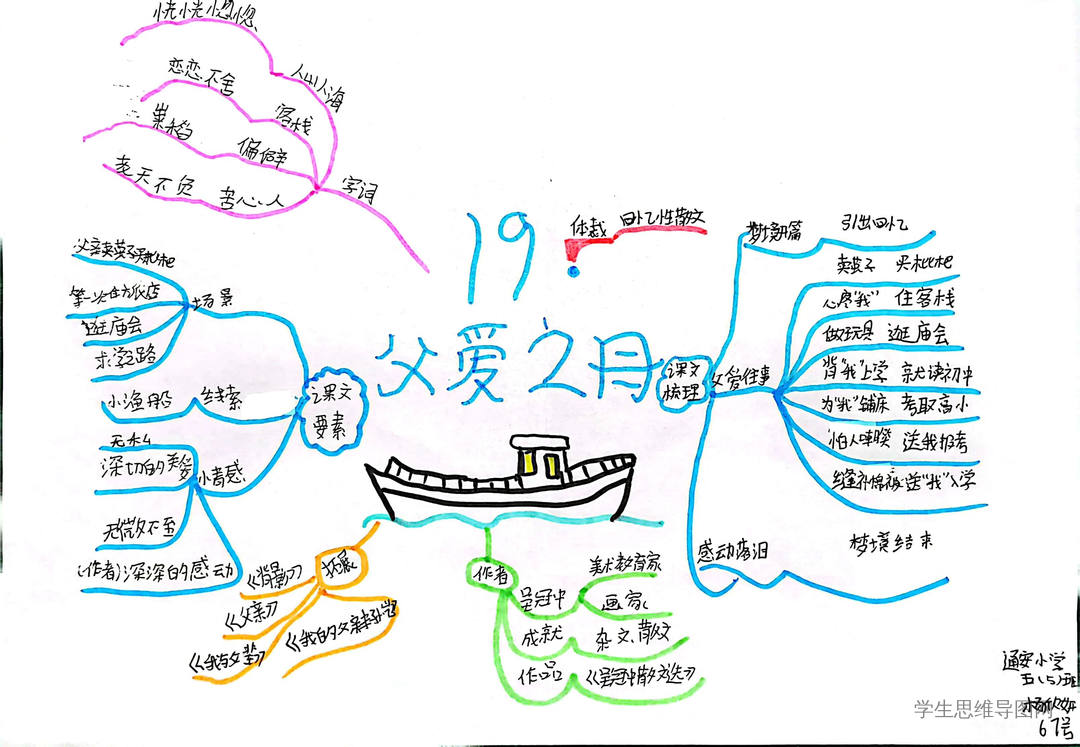 恍恍惚惚
人山人海
恋恋不舍
客栈
巢
偏僻
天不负 苦心人
字词
19
体裁
回忆性散文
父爱之舟
课文
要素
场景
父亲卖茧子买枇杷
第一次住旅店
逛庙会
求学之路
线索
小渔船
情感
深切的
无微不至
(作者)深深的感动
课文
梳理
开篇
引出回忆
父爱往事
卖茧子 买枇杷
心疼"我" 住客栈
做玩具 逛庙会
背"我"上学 就读初中
为"我"铺床 考取高小
怕人 送我报考
缝补棉被 送"我"入学
感动落泪
梦境结束
拓展
《背影》
《父亲》
《我与父
《我的父亲
作者
吴冠中
美术教育家
画家
成就
杂文、散文
作品
《吴冠中散文选》
通安小学
五(5)班
杨欣妍
67号
学生思维导图网